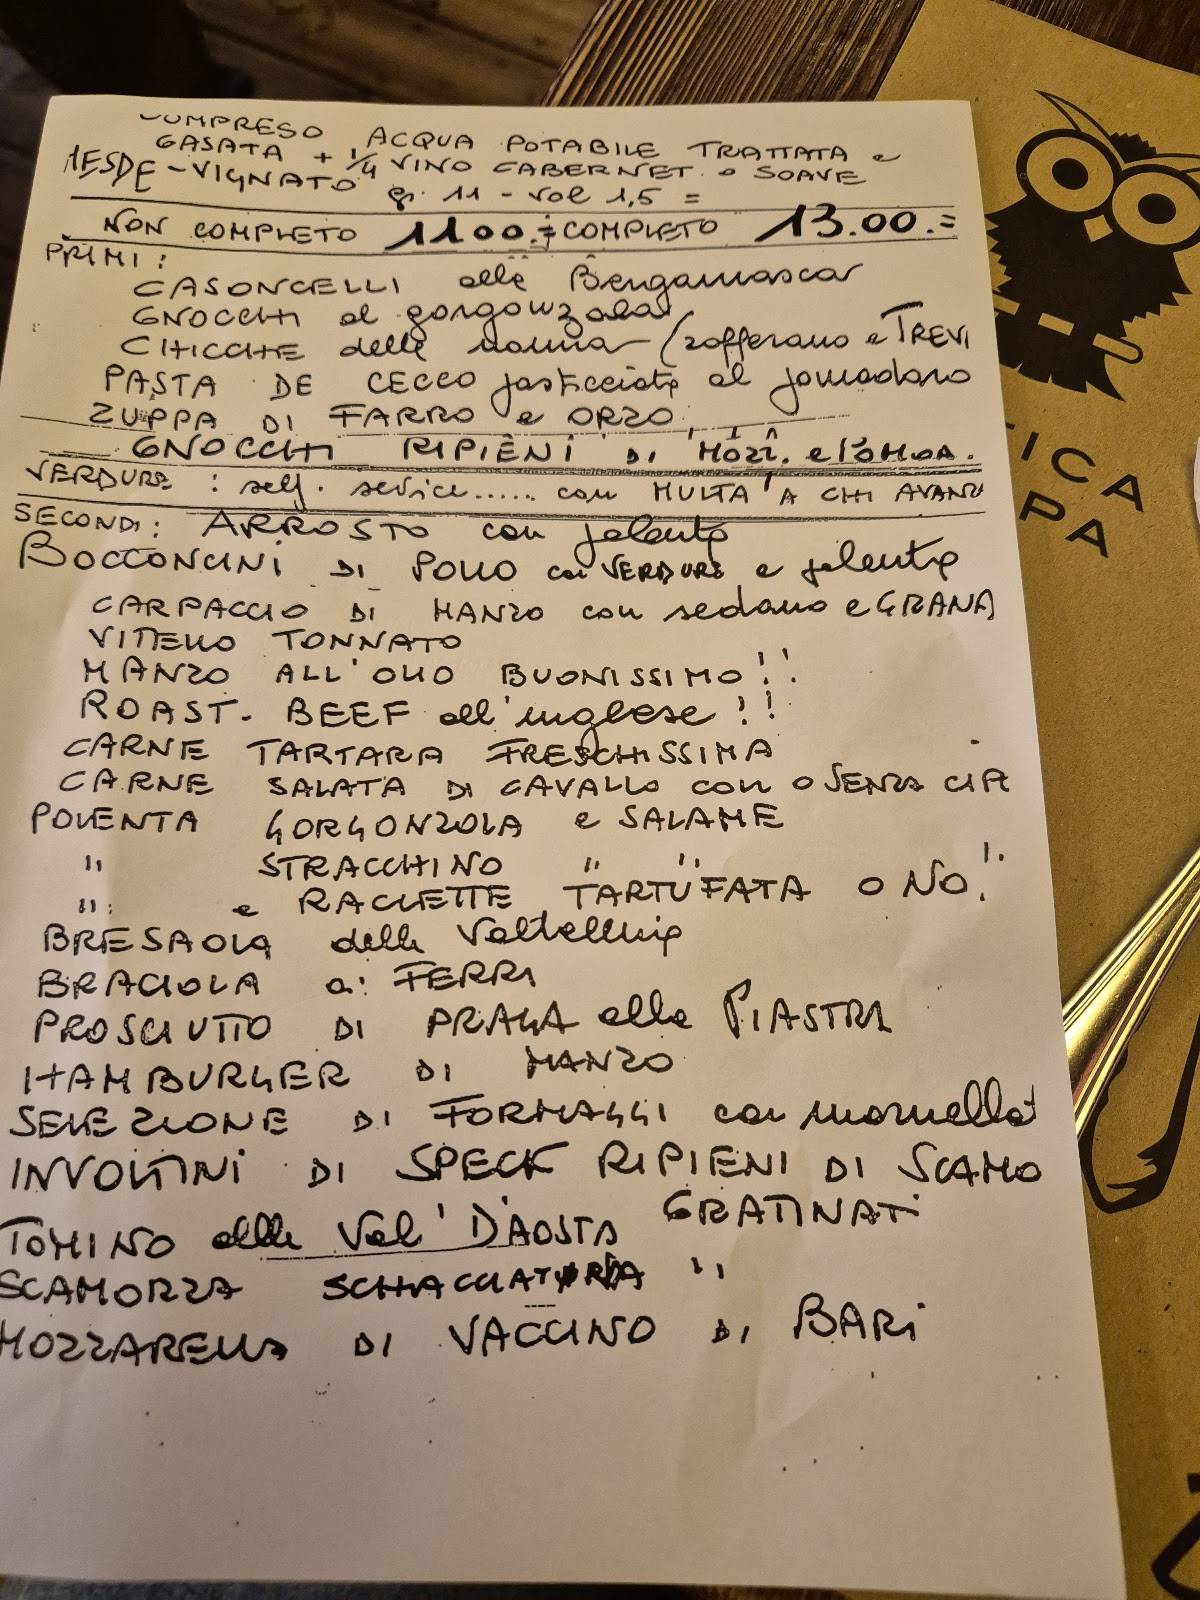 COMPRESO ACQUA POTABILE TRATTATA e
GASATA + 1/4 VINO CABERNET o SOAVE
MESDE-VIGNATO gr. 11 - vol 1,5 =
NON COMPLETO 11.00.= COMPLETO 13.00.=
PRIMI:
CASONCELLI alla Bergamasca
GNOCCHI al gorgonzola
CHICCHE della nonna (zafferano e TREVI
PASTA DE CECCO pasticciata al pomodoro
ZUPPA DI FARRO e ORZO
GNOCCHI RIPIENI DI MOZZ. e POMOD.
VERDURE: self. service...... con MULTA A CHI AVANZ
SECONDI: ARROSTO con polenta
BOCCONCINI DI POLLO con VERDURE e polenta
CARPACCIO DI MANZO con sedano e GRANA
VITELLO TONNATO
MANZO ALL'OLIO BUONISSIMO!!
ROAST-BEEF all'inglese!!
CARNE TARTARA FRESCHISSIMA
CARNE SALATA DI CAVALLO con o SENZA CIP
POLENTA GORGONZOLA e SALAME
" STRACCHINO " "
" e RACLETTE TARTUFATA O NO!
BRESAOLA della Valtellina
BRACIOLA ai FERRI
PROSCIUTTO DI PRAGA alla PIASTRA
HAMBURGER DI MANZO
SELEZIONE DI FORMAGGI con marmellat
INVOLTINI DI SPECK RIPIENI DI SCAMO
GRATINATI
TOMINO della Val' D'AOSTA
SCAMORZA SCHIACCIATA "
MOZZARELLA DI VACCINO DI BARI
TICA
PA